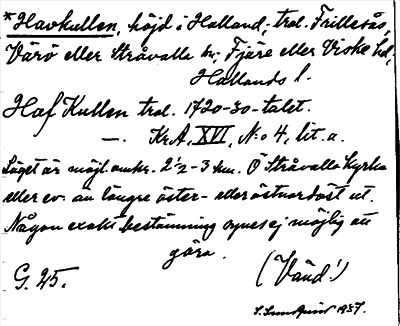 *Havkullen, höjd i Halland, trol. Frillesås,
Värö eller Stråvalla sn; Fjäre eller Viske hd,
Hallands l.
Haf Kullen trol. 1720-30-talet.
—. Kr.A. XVI, N:o 4, lit. a.
Läget är möjl. omkr. 2½-3 km. Ö Stråvalla kyrka
eller ev. än längre öster- eller östnordöst ut.
Någon exakt bestämning synes ej möjlig att
göra.
G. 25. (Vänd!)
S. Sundqvist 1937.